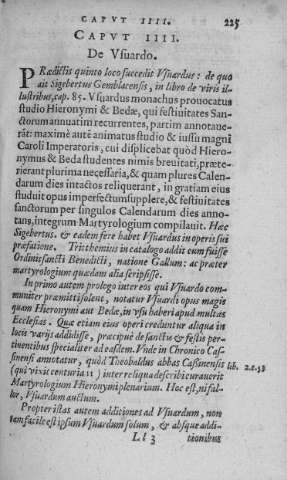 CAPVT IIII. 225
CAPVT IIII.
De Vsuardo.
PRædictis quinto loco succedit Vsuardus: de quo
ait Sigebertus Gemblacensis, in libro de viris il-
lustribus, cap. 85. Vsuardus monachus prouocatus
studio Hieronymi & Bedæ, qui festiuitates San-
ctorum annuatim recurrentes, partim annotaue-
rãt: maximè autẽ animatus studio & iussu magni
Caroli Imperatoris, cui displicebat quòd Hiero-
nymus & Beda studentes nimis breuitati, præte-
rierant plurima necessaria, & quam plures Calen-
darum dies intactos reliquerant, in gratiam eius
studuit opus imperfectum supplere, & festiuitates
sanctorum per singulos Calendarum dies anno-
tans, integrum Martyrologium compilauit. Hæc
Sigebertus, & eadem fere habet Vsuardus in operis sui
præfatione. Trithemius in catalogo addit eum fuisse
Ordinis sancti Benedicti, natione Gallum: ac præter
martyrologium quædam alia scripsisse.
In primo autem prologo inter eos qui Vsuardo com-
muniter præmitti solent, notatur Vsuardi opus magis
quam Hieronymi aut Bedæ, in vsu haberi apud multas
Ecclesias. Quæ etiam eius operi creduntur aliqua in
locis varijs addidisse, præcipuè de sanctis & festis per-
tinentibus specialiter ad easdem. Vnde in Chronico Cas-
sinensi annotatur, quòd Theobaldus abbas Cassinensis lib. 2. c. 53
(qui vixit centuria 11) inter reliqua describi curauerit
Martyrologium Hieronymi plenarium. Hoc est, ni fal-
lor, Vsuardum auctum.
Propter istas autem additiones ad Vsuardum, non
tam facile est ipsum Vsuardum solum, & absque addi-
Ll 3 tionibus